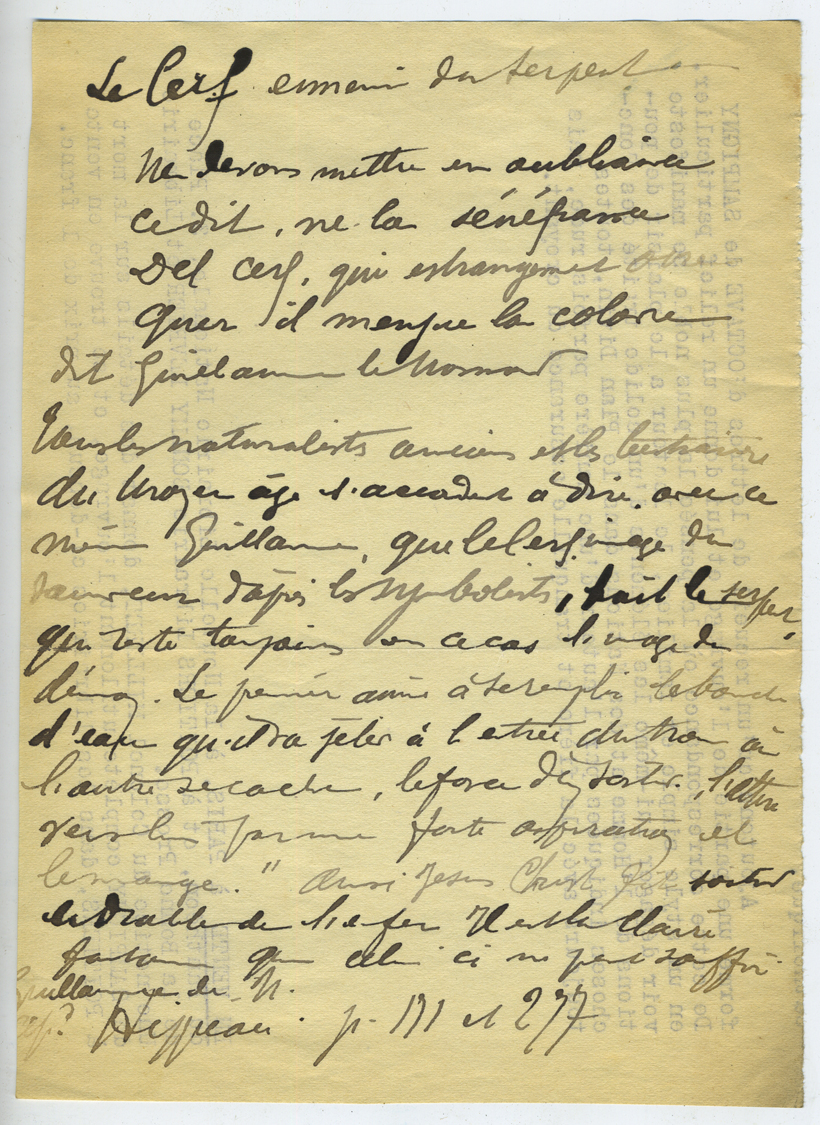 Le Cerf ennemi du serpent
Ne devons mettre en oubliance
Ce dit, ne la sénéfiance
Del cerf, qui estrangement
Quer il menjue la colovre
dit Guillaume le Normand
Tous les naturalistes anciens et les
du Moyen âge s'accordent à dire, avec ce
même Guillaume, que le Cerf, image du
Sauveur d'après les symbolistes, hait le serpent,
qui reste toujours en ce cas l'image du
démon. Le premier arrive à se remplir la bouche
d'eau qu'il va jeter à l'entrée du trou où
l'autre se cache, le force d'en sortir, l'attire
vers lui par une forte aspiration et
le mange." Ainsi Jésus Christ fit sortir
le diable de l'enfer Il est la Clarté
que celui ci ne peut souffrir
Guillaume de N.
Hippeau. p. 131 et 237